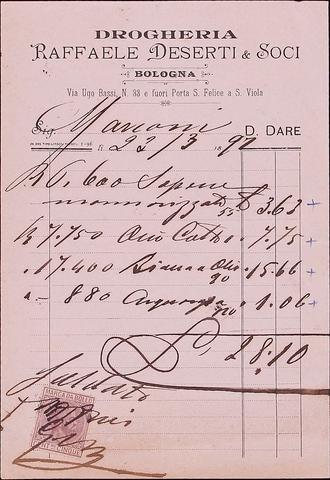 DROGHERIA
RAFFAELE DESERTI & SOCI
BOLOGNA
Via Ugo Bassi, N. 33 e fuori Porta S. Felice a S. Viola
Sig. Marconi D. DARE
li 23/3 189
K 7. 600 Sapone
55 £ 3.63 +
K 7.750 Olio 7.75 +
17.400 Bianca Olio 90 15.66 +
880 1.06 +
£ 28.10
Saldato
MARCA DA BOLLO